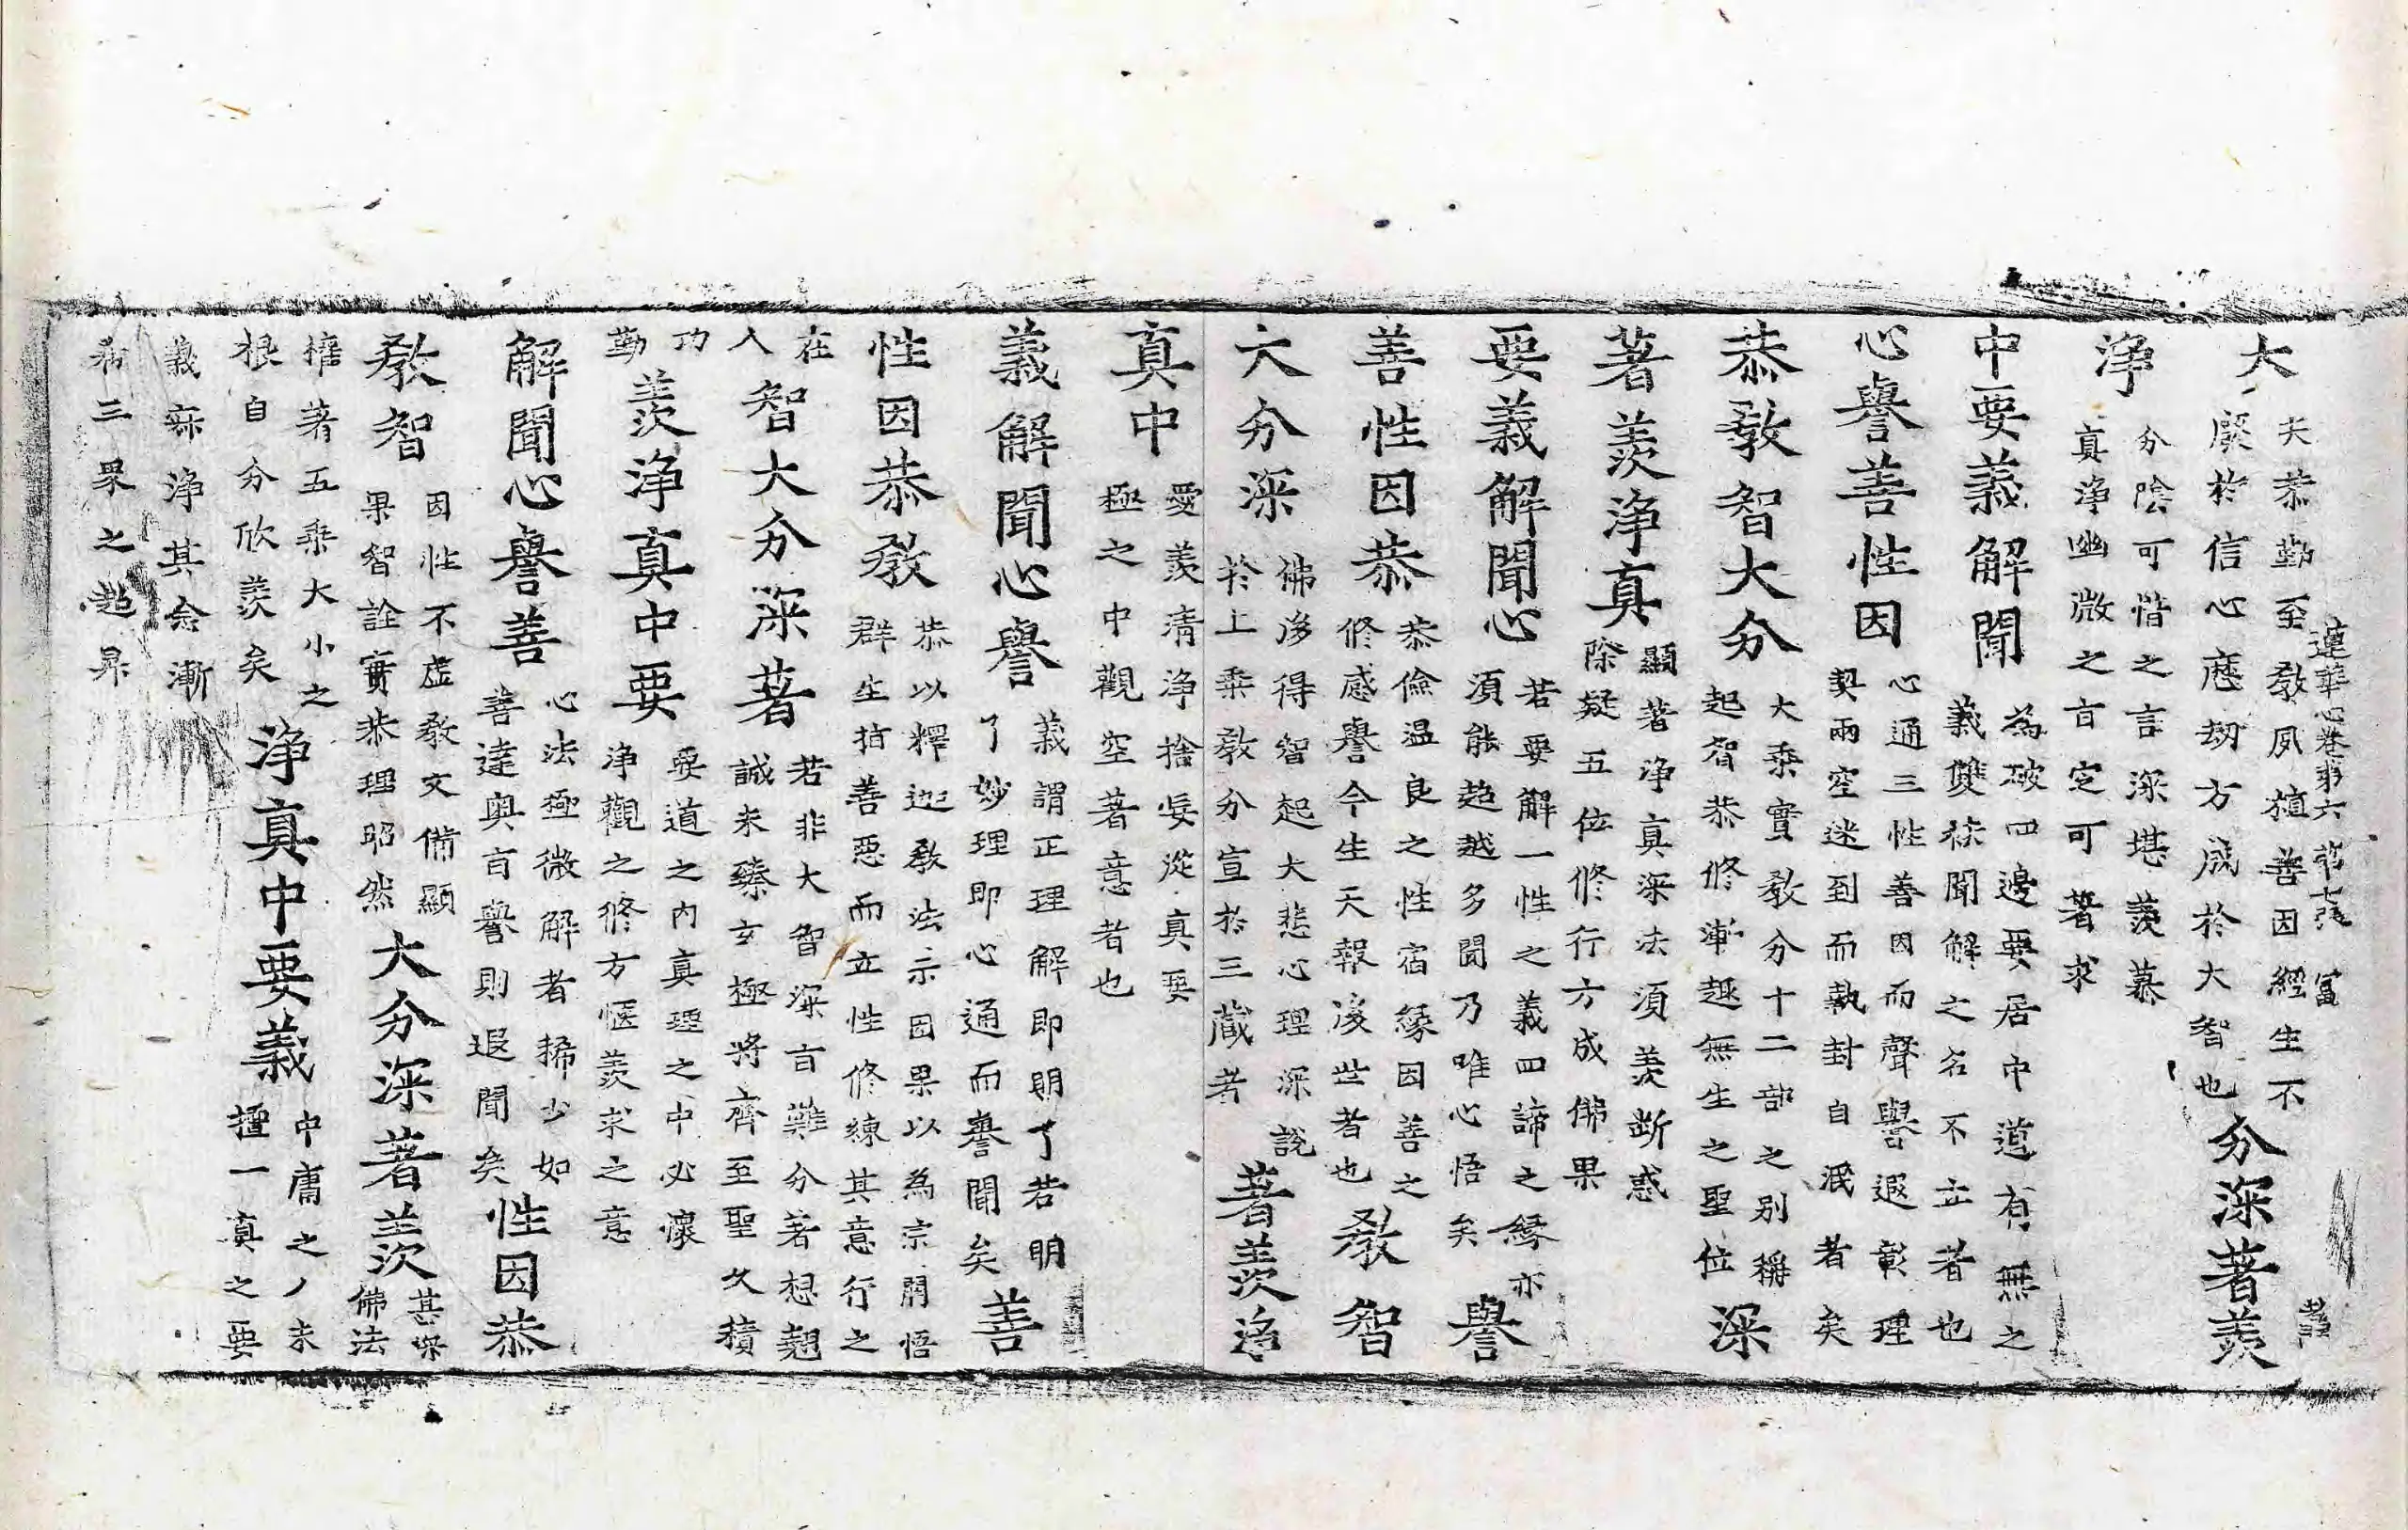 蓮華心卷第六 第七張 富
大
夫恭勤至教夙植善因經生不
廢於信心歷劫方成於大智也
分深著羨
淨
分陰可惜之言深堪羨慕
真淨幽微之旨定可著求
中要義解聞
為破四邊要居中道有無之
義雙祛聞解之名不立者也
心譽善性因
心通三性善因而聲譽遐彰理
契兩空迷到而執封自泯者矣
恭教智大分
大乘實教分十二部之別稱
起智恭修漸趣無生之聖位
深
著羨淨真
顯著淨真深法須羨斷惑
除疑五位修行方成佛果
要義解聞心
若要解一性之義四諦之緣亦
須能超越多聞乃唯心悟矣
譽
善性因恭
恭儉温良之性宿緣因善之
修感譽今生天報後世者也
教智
大分深
佛後得智起大悲心理深說
於上乘教分宣於三藏者
著羨淨
真中
愛羨清淨捨妄從真要
極之中觀空著意者也
義解聞心譽
義謂正理解即明了若明
了妙理即心通而譽聞矣
善
性因恭教
恭以釋迦教法示因果以為宗開悟
群生指善惡而立性修練其意行之
在
人
智大分深著
若非大智深旨難分著想翹
誠未臻玄極將齊至聖久積
功
勤
羨淨真中要
要道之內真理之中必懷
淨觀之修方愜羨求之意
解聞心譽善
心法極微解者稀少如
善達奧旨譽則遐聞矣
性因恭
教智
因性不虛教文備顯
果智詮實恭理昭然
大分深著羨
甚深
佛法
權著五乘大小之
根自分欣羨矣
淨真中要義
中庸之人求
擅一真之要
義寂淨其念漸
為三界之超昇